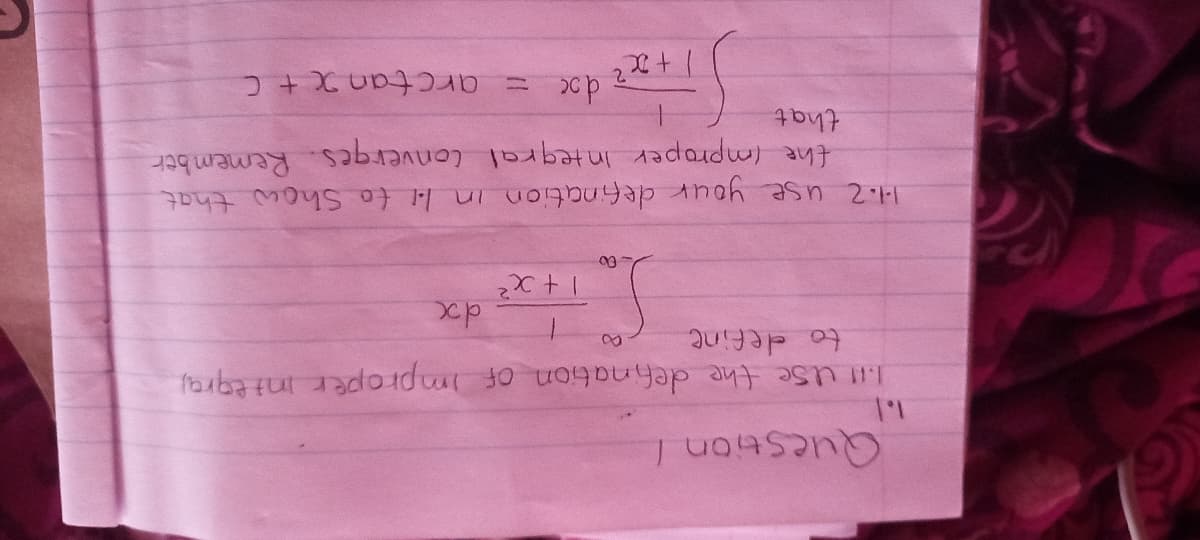 Question 1
1.1
1.1.1 use the defination of improper integral
to define ∫_{-∞}^{∞} 1/(1+x²) dx
1.1.2 use your defination in 1.1 to show that
the improper integral converges. Remember
that ∫ 1/(1+x²) dx = arctan x + c